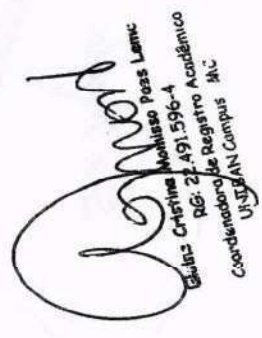 Cristina Monisso Pazs Leme
RG: 22.491.596-4
Coordenadora de Registro Acadêmico
UNIBAN Campus MC